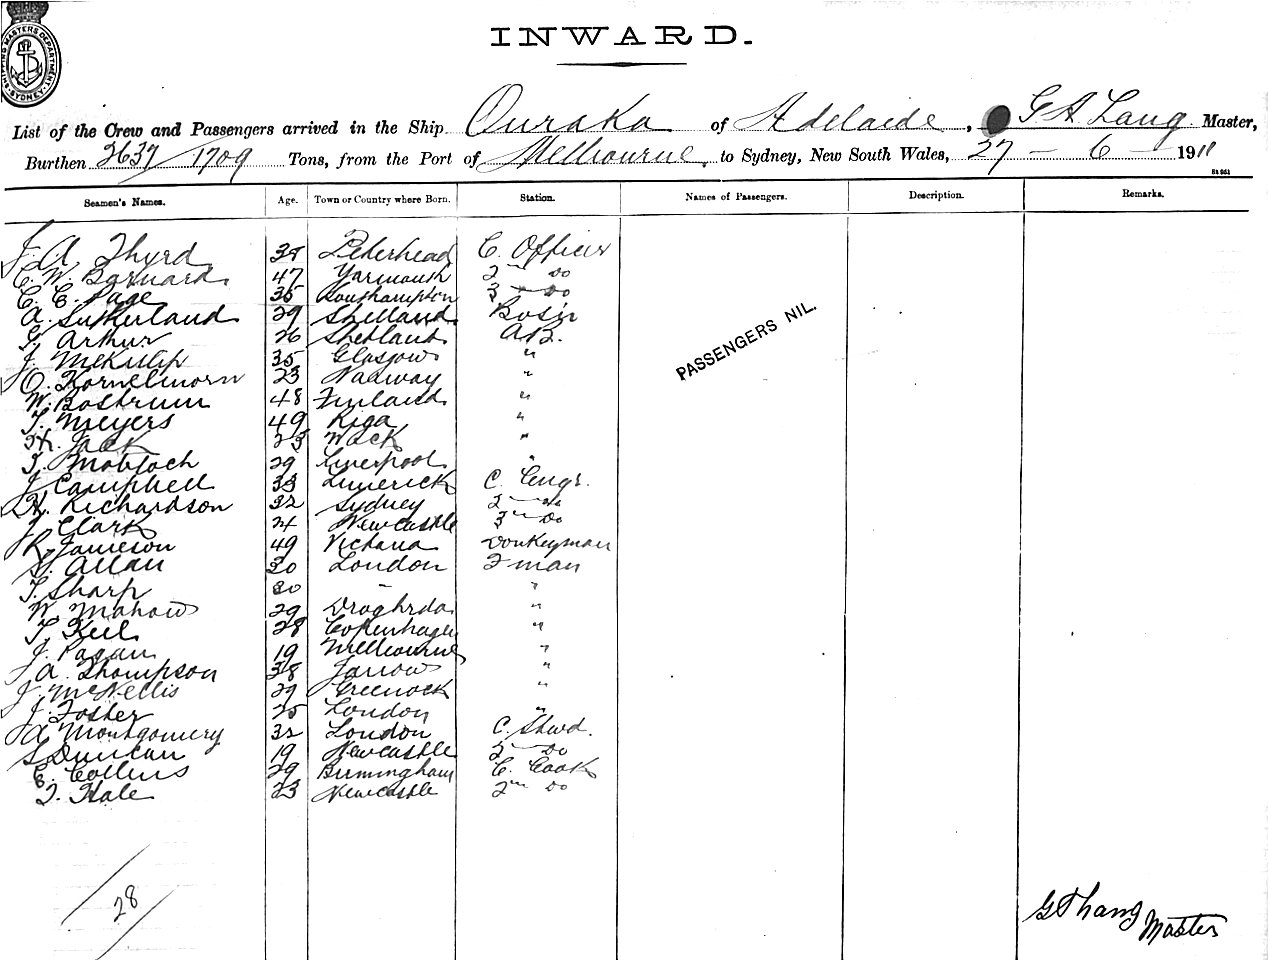 SHIPPING MASTERS DEPARTMENT SYDNEY
INWARD.
List of the Crew and Passengers arrived in the Ship Ouraka of Adelaide, G A Lang Master,
Burthen 2637/1709 Tons, from the Port of Melbourne, to Sydney, New South Wales, 27 – 6 – 1911
Seamen's Names. Age. Town or Country where Born. Station. Names of Passengers. Description. Remarks.
J. A. Thyrd 38 Peterhead C. Officer
C. W. Barnard 47 Yarmouth 2nd do
C. C. Page 35 Southampton 3 do
A. Sutherland 29 Shetland Bosn
G. Arthur 26 Shetland A.B.
J. McKillp 35 Glasgow "
O. Kornelinorn 23 Norway "
W. Bostrum 48 Finland "
T. Meyers 49 Riga "
H. Jack 23 Wick "
T. Liverpool 29 "
J. Campbell 33 Limerick C. Engr.
H. Richardson 32 Sydney 2 do
J. Clark 24 Newcastle 3rd do
R. Jameson 49 Victoria Donkeyman
H. Allan 30 London Fman
T. Sharp 30 – "
W. Mahow 29 Droghrda "
T. Keil 28 Copenhagen "
J. Pagan 19 Melbourne "
A. Thompson 38 Jarrow "
J. McNellis 27 Greenock "
J. Foster 25 London "
A Montgomery 32 London C. Stwd.
S Duncan 19 Newcastle 2 do
E. Collins 29 Birmingham C. Cook
T. Hale 23 Newcastle 2nd do
PASSENGERS NIL.
28
G A Lang Master